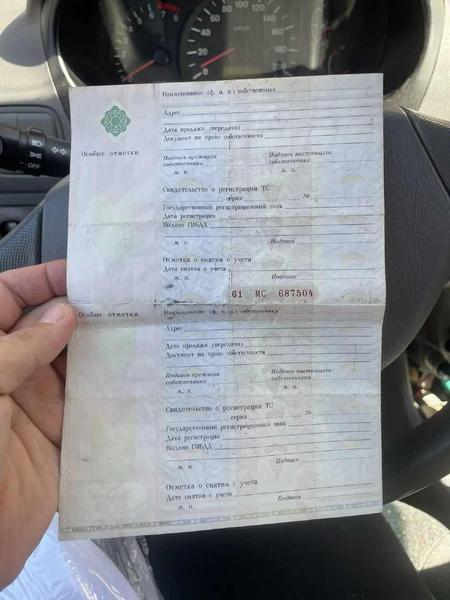 Наименование (ф. и. о.) собственника
Адрес
Дата продажи (передачи)
Документ на право собственности
Особые отметки
Подпись прежнего собственника
Подпись настоящего собственника
м. п.
м. п.
Свидетельство о регистрации ТС
серия №
Государственный регистрационный знак
Дата регистрации
Выдано ГИБДД
м. п. Подпись
Отметка о снятии с учета
Дата снятия с учета
м. п. Подпись
61 МС 687504
Особые отметки
Наименование (ф. и. о.) собственника
Адрес
Дата продажи (передачи)
Документ на право собственности
Подпись прежнего собственника
Подпись настоящего собственника
м. п.
м. п.
Свидетельство о регистрации ТС
серия №
Государственный регистрационный знак
Дата регистрации
Выдано ГИБДД
м. п. Подпись
Отметка о снятии с учета
Дата снятия с учета
м. п. Подпись
OFF
km/h